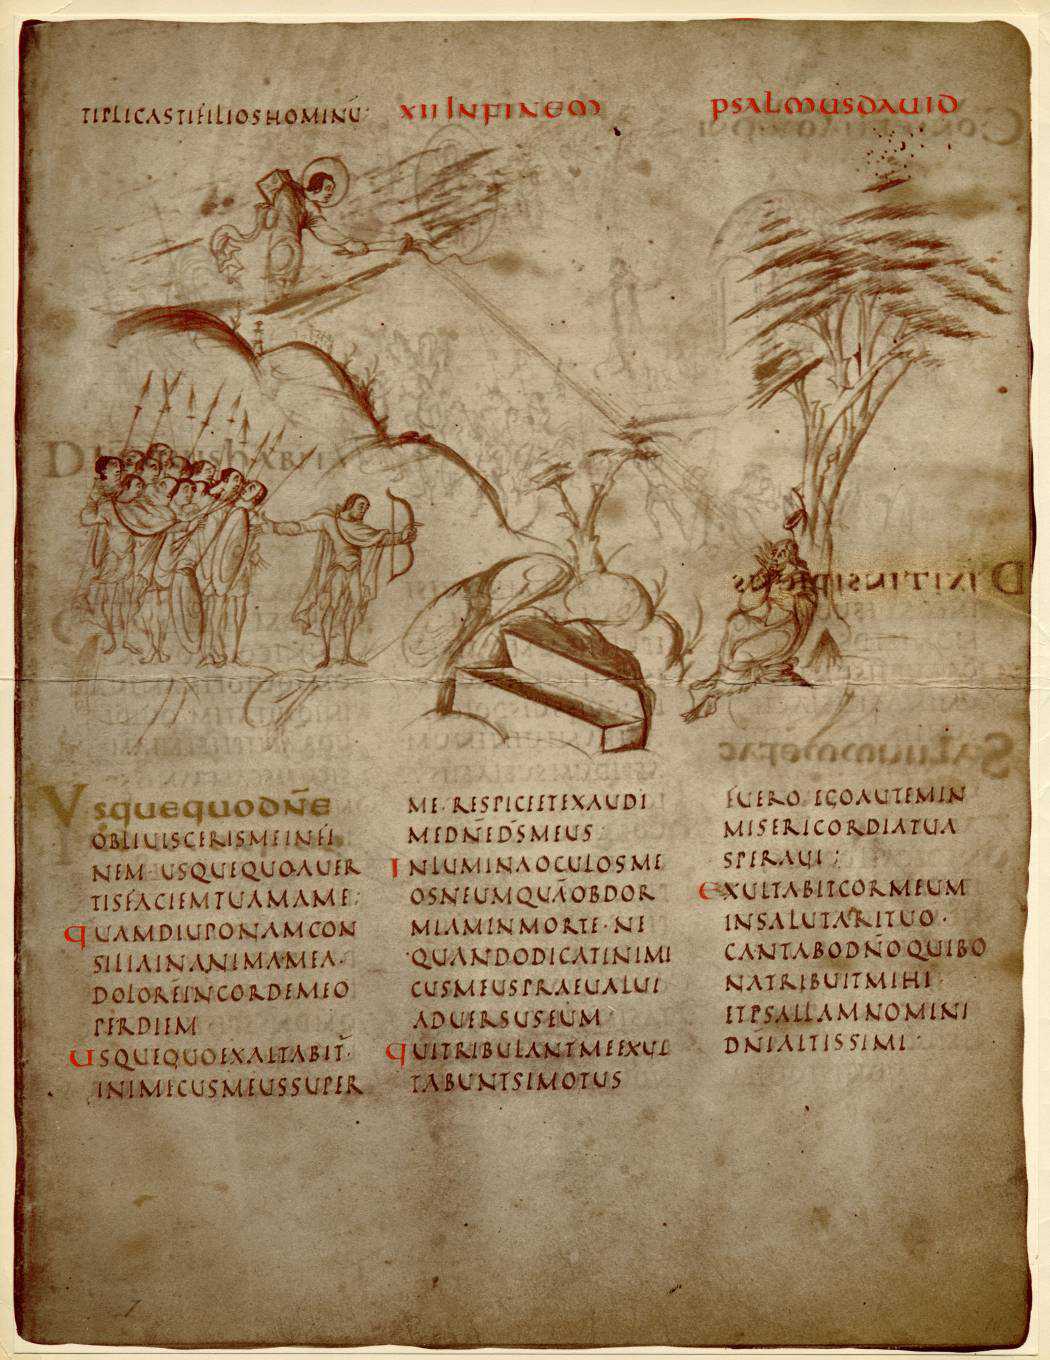 TIPLICASTIFILIOSHOMINŪ·
XII INFINEM PSALMUSDAUID
USQUEQUODN̄E
OBLIUISCERISMEINFI
NEM·USQUEQUOAUER
TISFACIEMTUAMAME;
QUAMDIUPONAMCON
SILIAINANIMAMEA·
DOLOREINCORDEMEO
PERDIEM
USQUEQUOEXALTABIT̄·
INIMICUSMEUSSUPER
ME·RESPICEETEXAUDI
MEDN̄ED̄SMEUS
INLUMINAOCULOSME
OSNEUMQUĀOBDOR
MIAMINMORTE·NE
QUANDODICATINIMI
CUSMEUSPRAEUALUI
ADUERSUSEUM
QUITRIBULANTMEEXUL
TABUNTSIMOTUS
FUERO EGOAUTEMIN
MISERICORDIATUA
SPERAUI;
EXULTABITCORMEUM
INSALUTARITUO·
CANTABODN̄OQUIBO
NATRIBUITMIHI
ETPSALLAMNOMINI
DN̄IALTISSIMI·